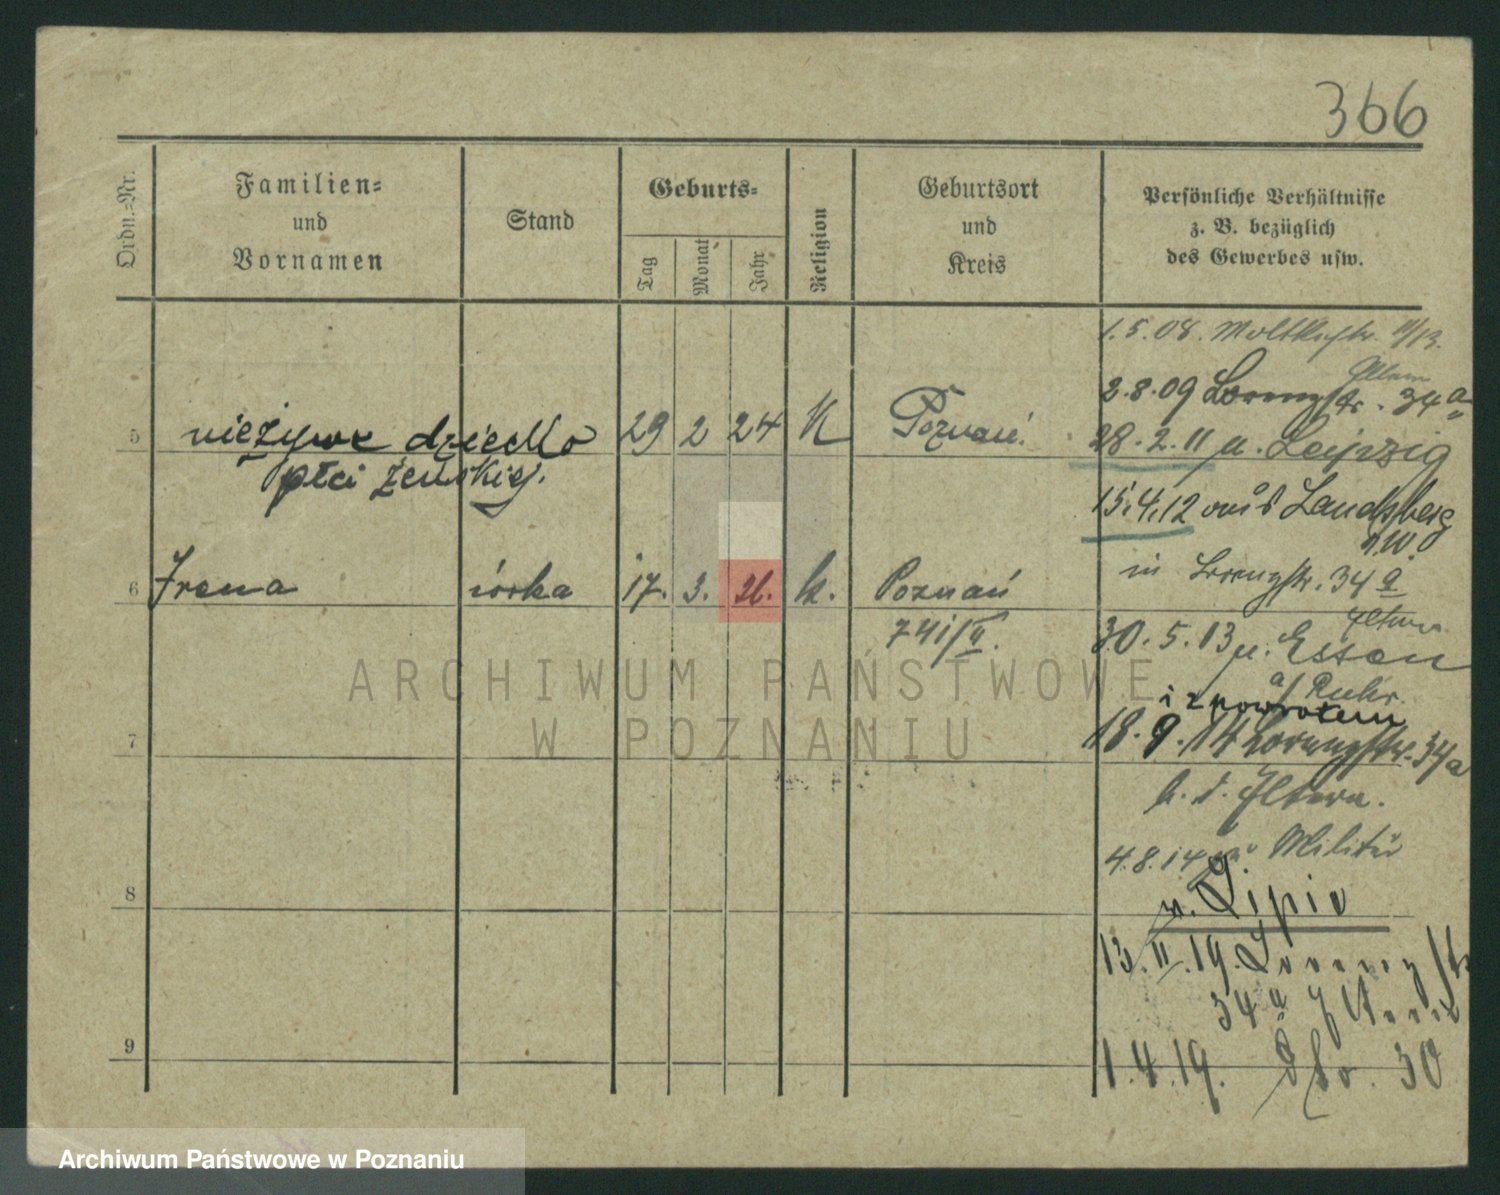 366
Ordn.-Nr.
Familien-
und
Vornamen
Stand
Geburts-
Tag
Monat
Jahr
Religion
Geburtsort
und
Kreis
Persönliche Verhältnisse
z. B. bezüglich
des Gewerbes usw.
1.5.08. Moltkestr. 11/13.
Eltern
2.8.09 Lorenzstr. 34a
5 nieżywe dziecko 29 2 24 K Poznań.
płci żeńskiej.
28.2.11 n. Leipzig
15.4.12 aus Landsberg
a.W.
6 Irena córka 17. 3. 26. k. Poznań
741/II.
in Lorenzstr. 34a
Eltern
30.5.13 n. Essen
a/Ruhr.
i z powrotem
7
18.9.14 Lorenzstr. 34a
b. d. Eltern.
4.8.14 zu Militär
8
v. Lipie
13.II.19. Lorenzstr
34a Eltern
9
1.4.19. dto. 30
ARCHIWUM PAŃSTWOWE
W POZNANIU
Archiwum Państwowe w Poznaniu